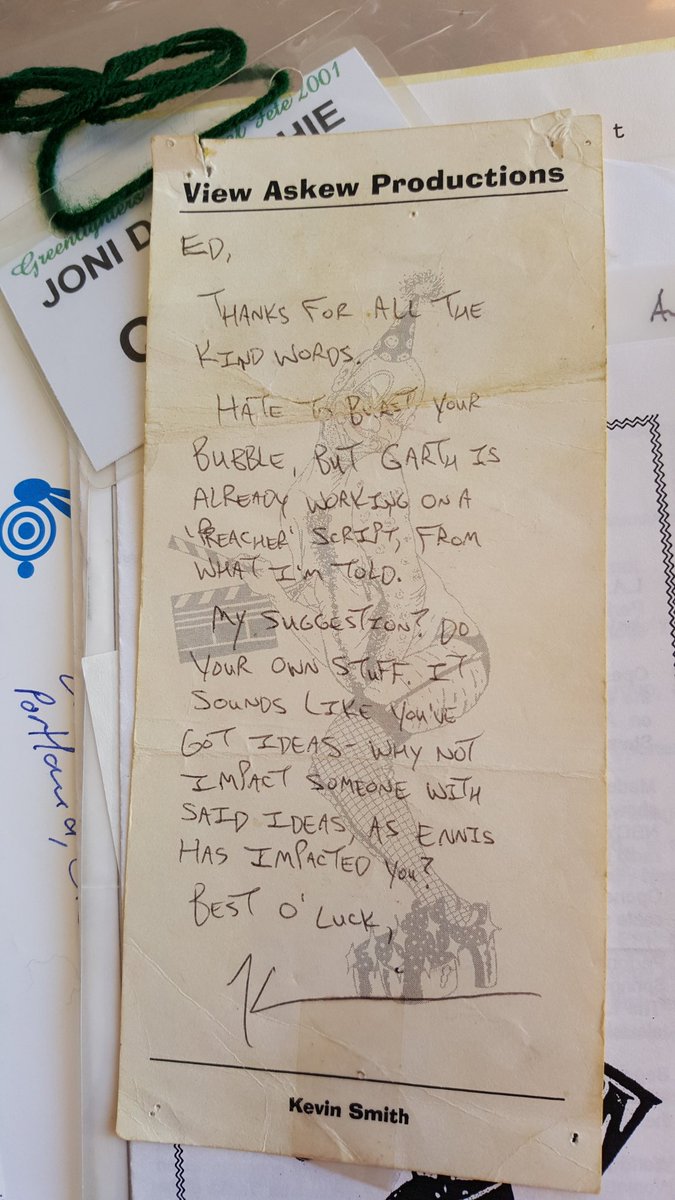 t
Fete 2001
Greenlighters
JONI D
View Askew Productions
ED,
THANKS FOR ALL THE
KIND WORDS.
HATE TO BURST YOUR
BUBBLE, BUT GARTH IS
ALREADY WORKING ON A
'PREACHER' SCRIPT, FROM
WHAT I'M TOLD.
MY SUGGESTION? DO
YOUR OWN STUFF. IT
SOUNDS LIKE YOU'VE
GOT IDEAS - WHY NOT
IMPACT SOMEONE WITH
SAID IDEAS, AS ENNIS
HAS IMPACTED YOU?
BEST O' LUCK,
K
Kevin Smith
Portland,